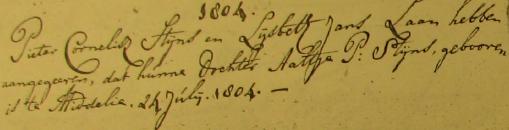 1804.
Pieter Cornelisz Stijns en Lijsbeth Jans Laan hebben
aangegeeven, dat hunne Dochter Aaltje P: Stijns, gebooren
is te Middelie. 24 July. 1804. —